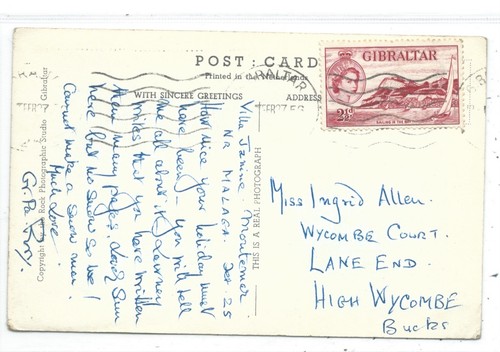 POST CARD
Printed in the Netherlands
WITH SINCERE GREETINGS
ADDRESS
GIBRALTAR
2½D
SAILING IN THE BAY
Copyright of the Rock Photographic Studio Gibraltar
THIS IS A REAL PHOTOGRAPH
Villa Jasmine. Montemar
Nr MALAGA.
25
How nice your holiday must
have been - You will tell
me all about it. Journey
miles that you have written
many pages. Lovely Sun
here but no snow so we!
Cannot make a snow man.
Much Love.
Miss Ingrid Allen.
WYCOMBE COURT.
LANE END.
HIGH WYCOMBE
Bucks